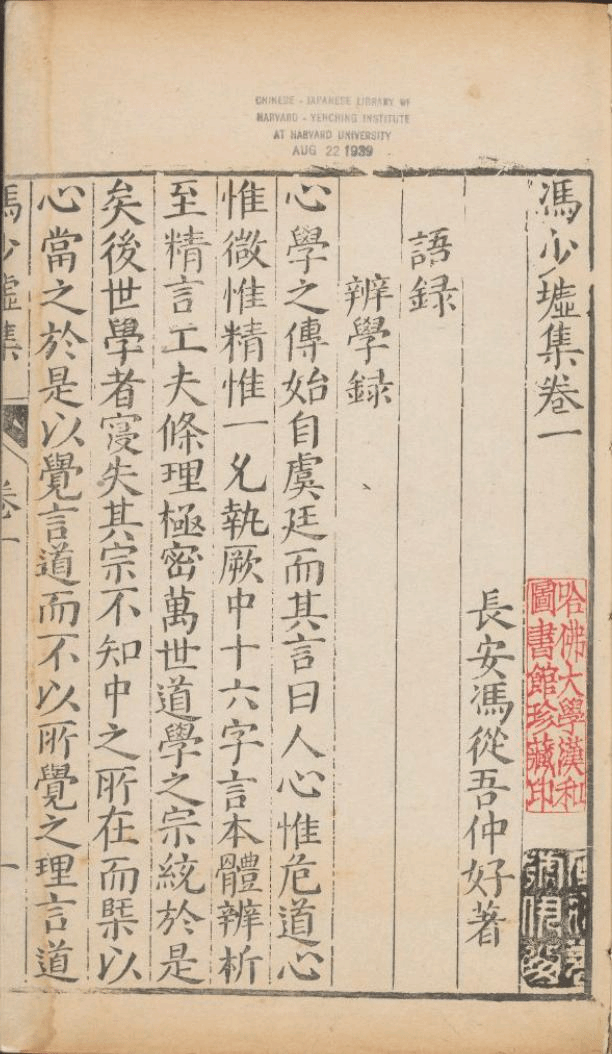 CHINESE - JAPANESE LIBRARY OF
HARVARD - YENCHING INSTITUTE
AT HARVARD UNIVERSITY
AUG 22 1939
馮少墟集卷一
哈佛大學漢和
圖書館珍藏印
長安馮從吾仲好著
語録
辨學録
心學之傳始自虞廷而其言曰人心惟危道心
惟微惟精惟一允執厥中十六字言本體辨析
至精言工夫條理極密萬世道學之宗統於是
矣後世學者寖失其宗不知中之所在而槩以
心當之於是以覺言道而不以所覺之理言道
馮少墟集
卷一
一